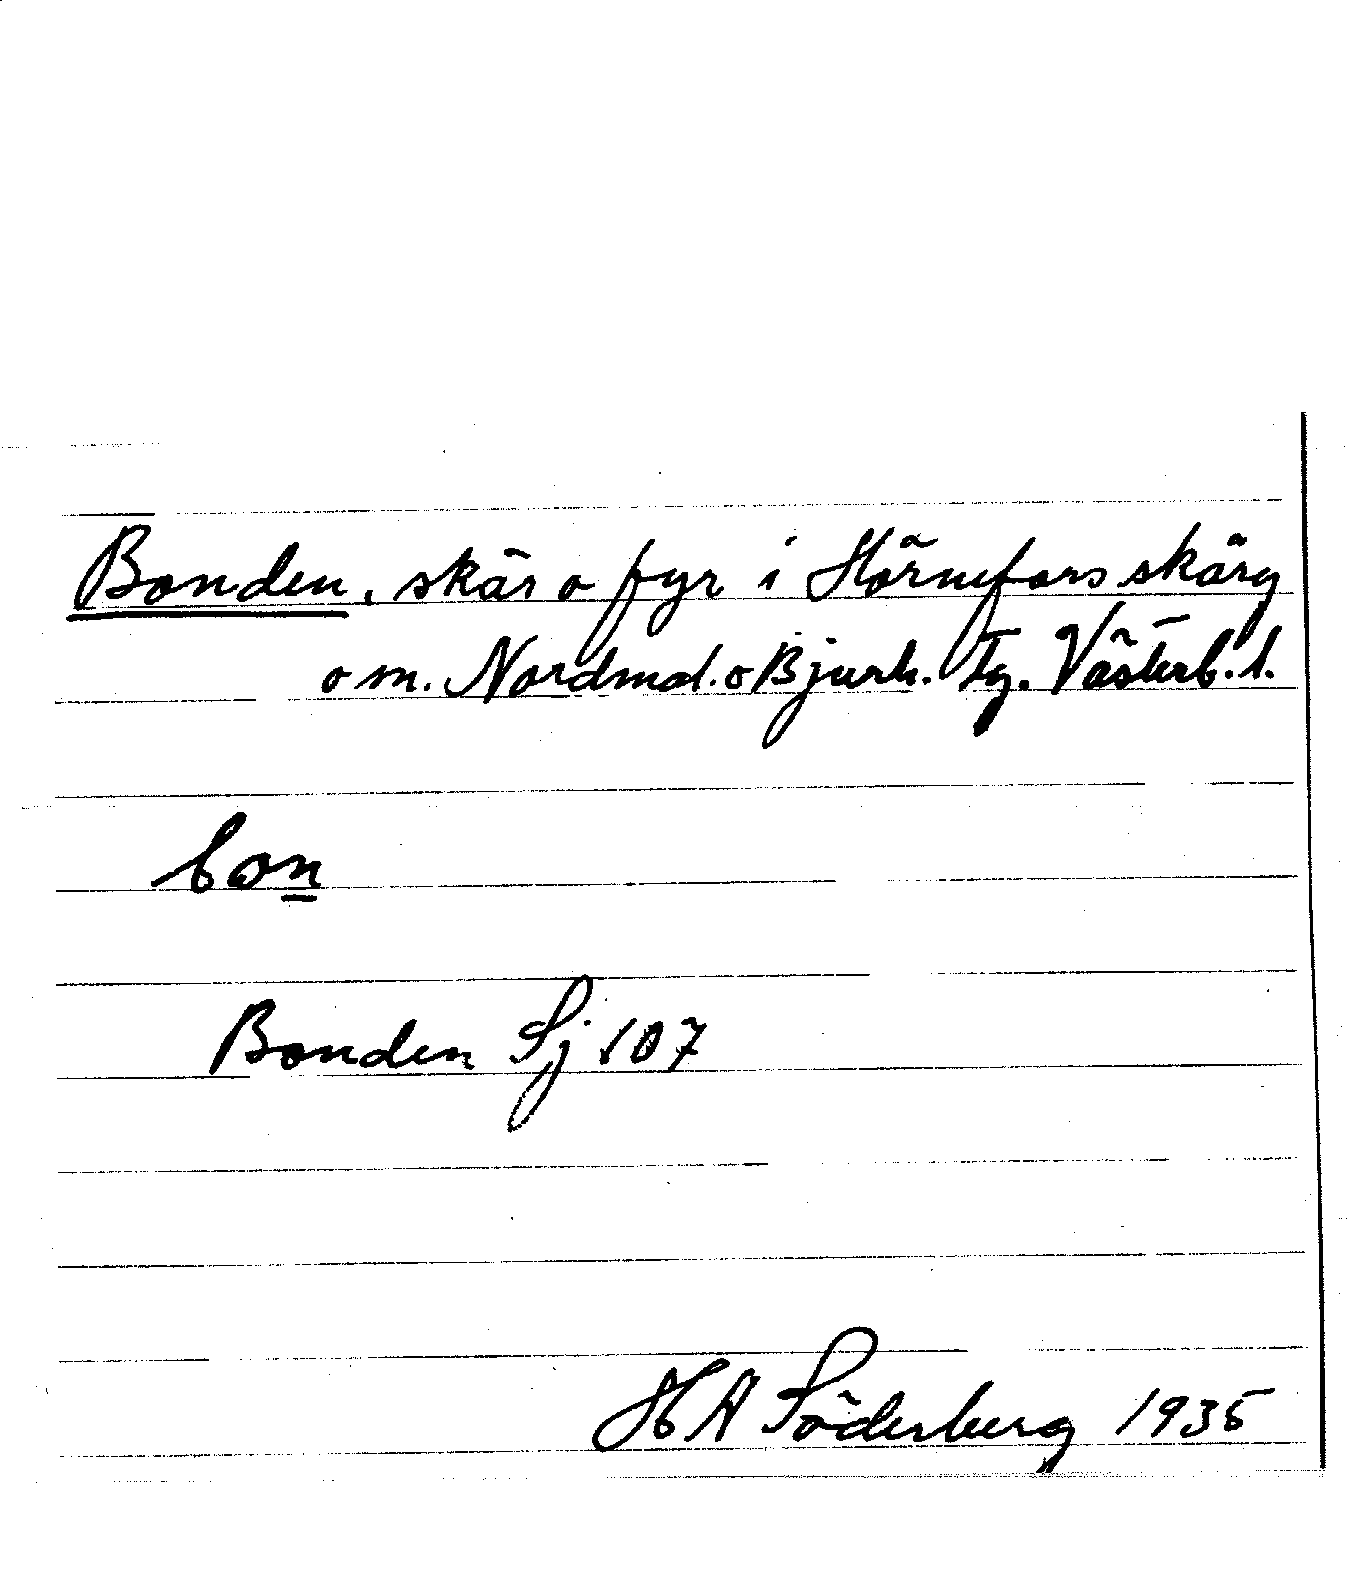 Bonden, skär o fyr i Hörnefors skärg
o m. Nordmal. o Bjurh. Tg. Västerb. l.
bon
Bonden Sj 107
HA Söderberg 1935